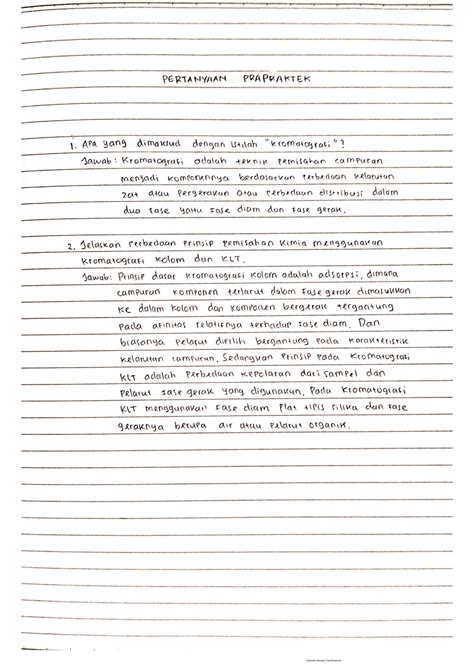 PERTANYAAN PRAPRAKTEK
1. Apa yang dimaksud dengan istilah "Kromatografi"?
Jawab: Kromatografi adalah teknik pemisahan campuran
menjadi komponennya berdasarkan perbedaan kelarutan
zat atau pergerakan atau perbedaan distribusi dalam
dua fase yaitu fase diam dan fase gerak.
2. Jelaskan perbedaan prinsip pemisahan kimia menggunakan
kromatografi kolom dan KLT.
Jawab: Prinsip dasar kromatografi kolom adalah adsorpsi, dimana
campuran komponen terlarut dalam fase gerak dimasukkan
ke dalam kolom dan komponen bergerak tergantung
pada afinitas relatifnya terhadap fase diam. Dan
biasanya pelarut dipilih bergantung pada karakteristik
kelarutan campuran. Sedangkan prinsip pada kromatografi
KLT adalah perbedaan kepolaran dari sampel dan
pelarut fase gerak yang digunakan. Pada kromatografi
KLT menggunakan fase diam plat tipis silika dan fase
geraknya berupa air atau pelarut organik.